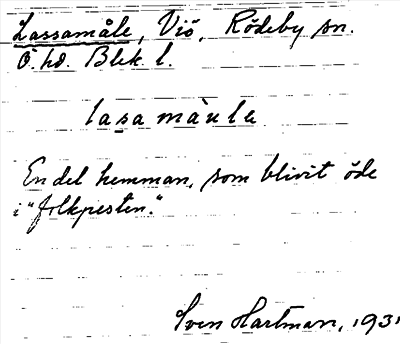 Lassamåle, Viö, Rödeby sn.
Ö. hd. Blek. l.
lasamàule
En del hemman, som blivit öde
i "folkpesten."
Sven Hartman, 1931